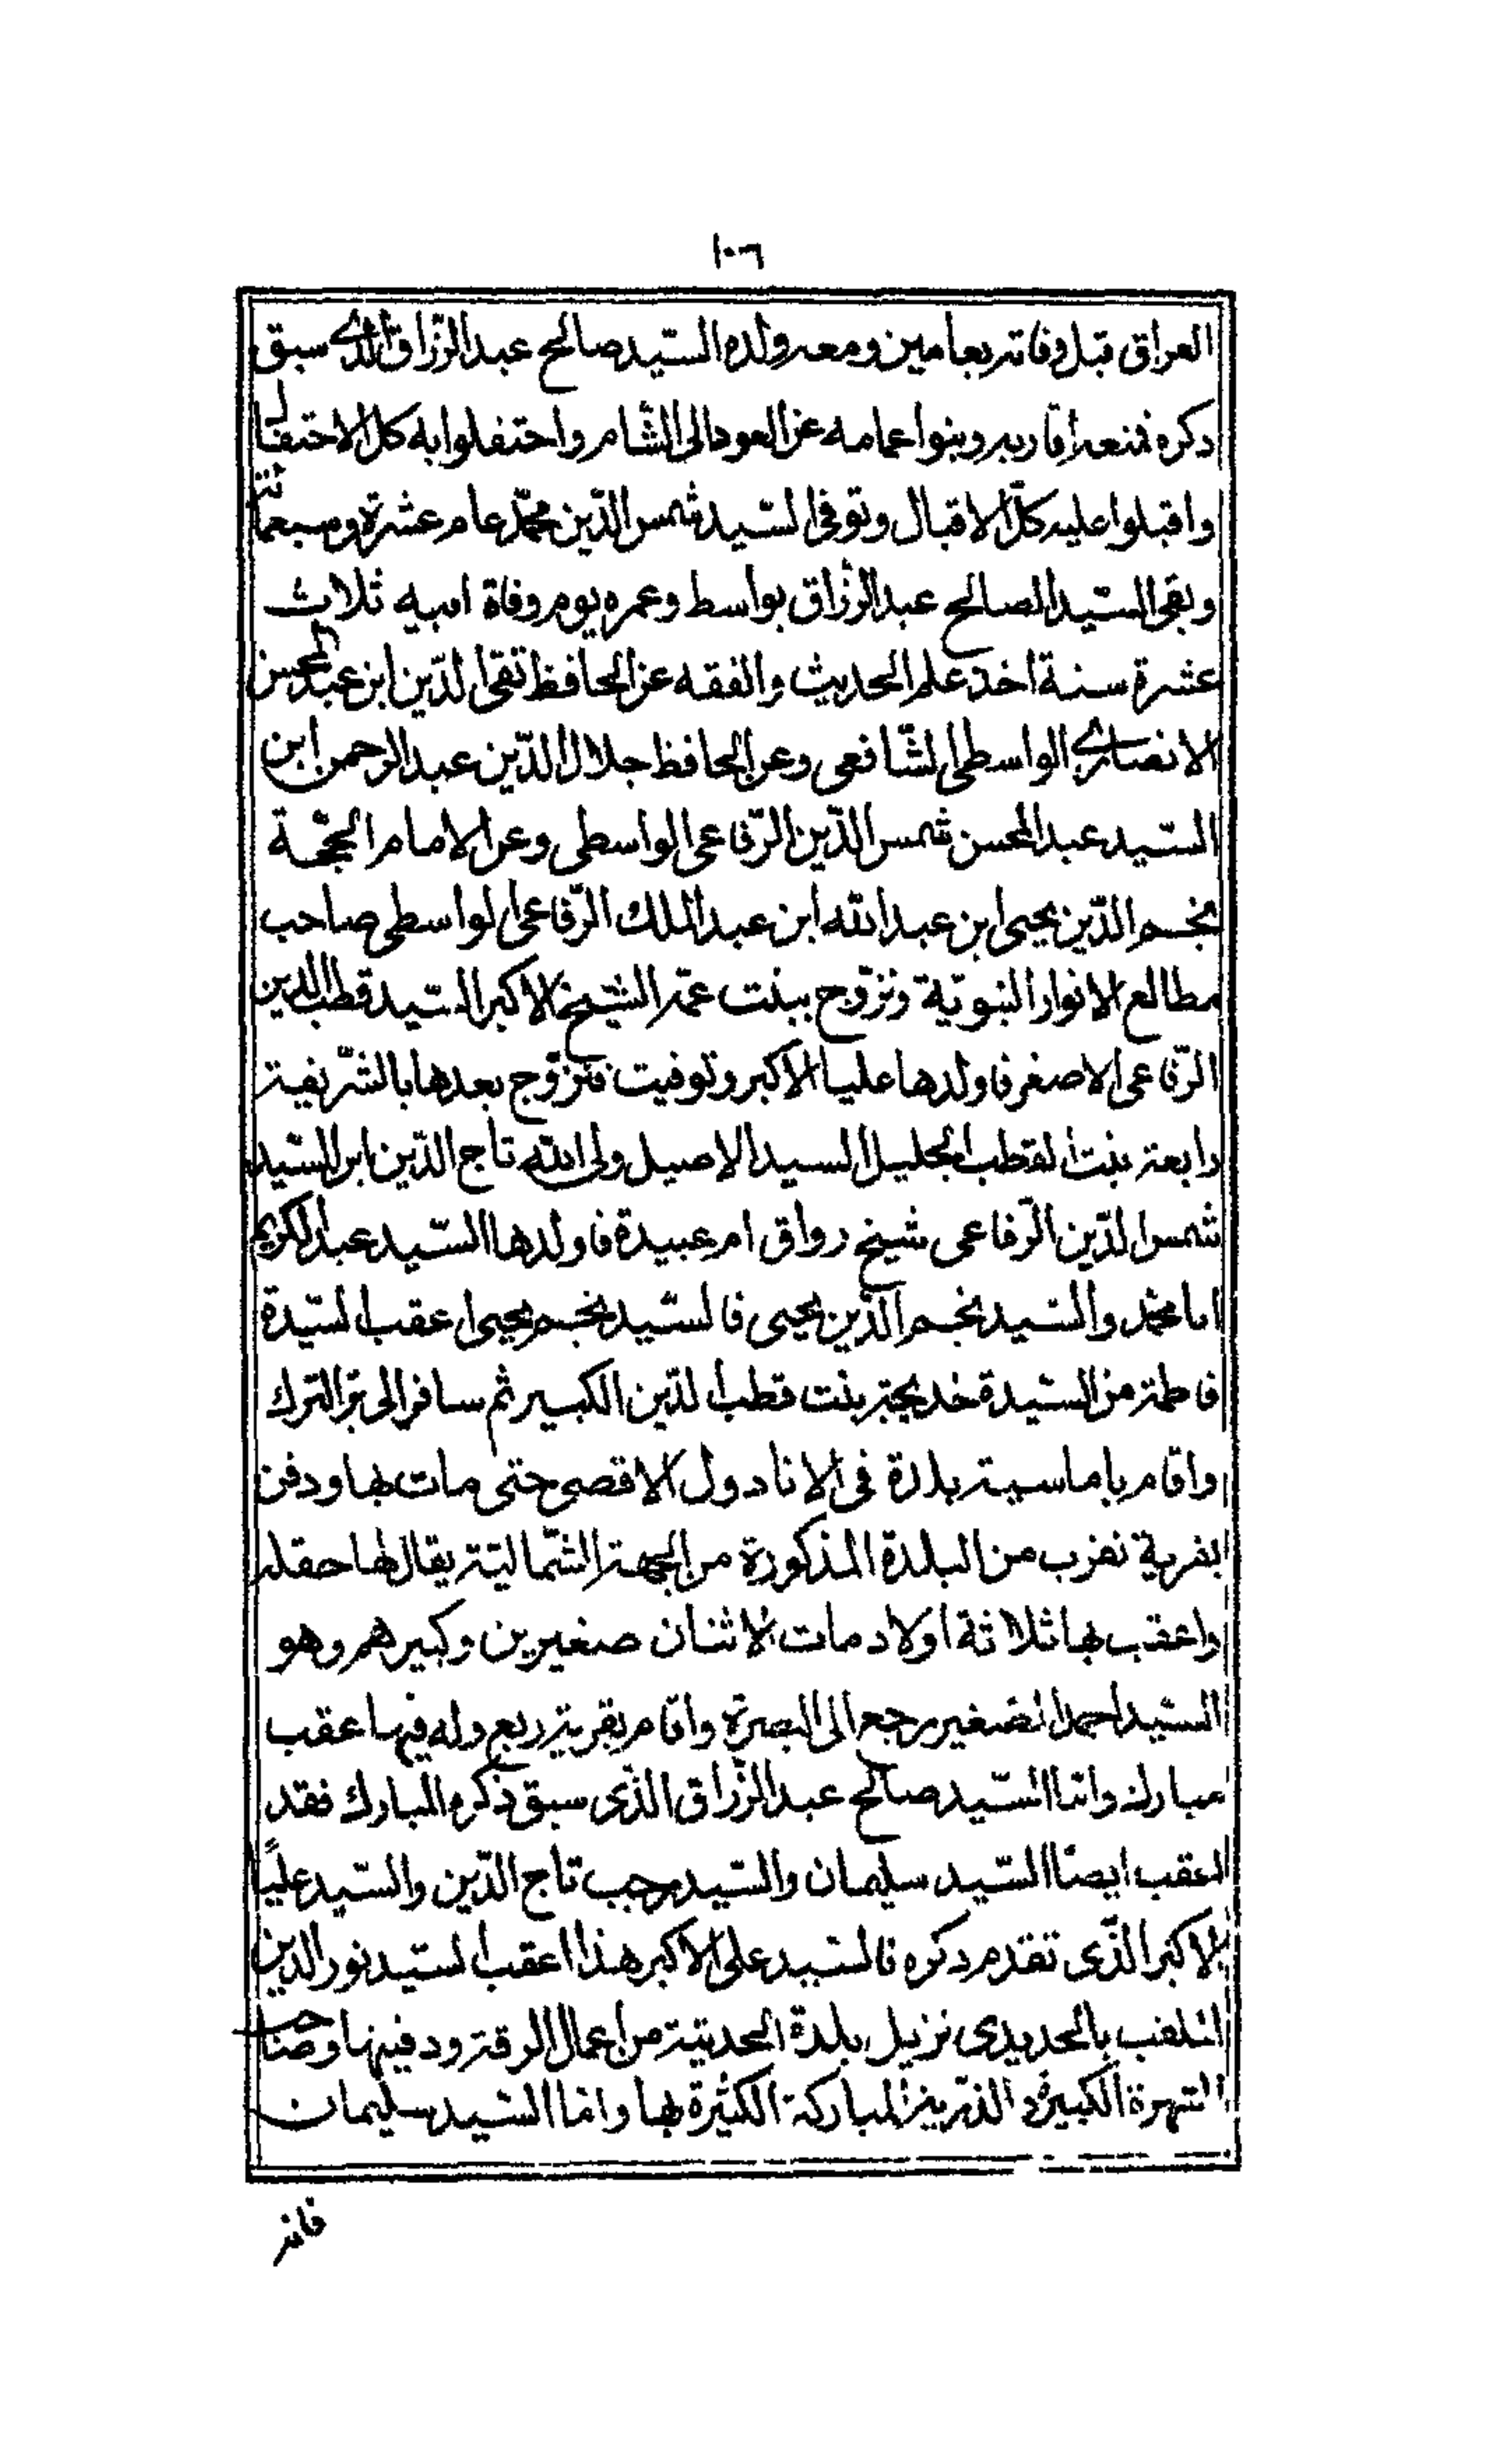 ١٠٦
العراق قبل وفاته بعامين ومعه ولده السّيد صالح عبد الرّزاق الّذى سبق
ذكره فمنعه اقاربه وبنوا عمامه عن العود الى الشّام واحتفلوا به كل الاحتفال
واقبلوا عليه كلّ الاقبال وتوفى السّيد شمس الدّين محمّد عام عشرة وسبعمائة
وبقى السّيد الصالح عبد الرّزاق بواسط وعمره يوم وفاة ابيه ثلاث
عشرة سنة اخذ علم الحديث والفقه عن الحافظ تقى الدّين ابن عبد المحسن
الانصارى الواسطى الشّافعى وعن الحافظ جلال الدّين عبد الرحمن ابن
السّيد عبد المحسن شمس الدّين الرّفاعى الواسطى وعن الامام الحجّة
نجم الدّين يحيى ابن عبد الله ابن عبد الملك الرّفاعى الواسطى صاحب
مطالع الانوار النبويّة وتزوّج ببنت عمّه الشّيخ الاكبر السّيد قطب الدين
الرّفاعى الاصغر فاولدها عليا الاكبر وتوفيت فتزوّج بعدها بالشّريفة
رابعة بنت القطب الجليل السيد الاصيل ولى الله تاج الدّين ابن السّيد
شمس الدّين الرّفاعى شيخ رواق ام عبيدة فاولدها السّيد عبد الكريم
ابا محمّد والسّيد نجم الدّين يحيى فالسّيد نجم يحيى اعقب السّيدة
فاطمة من السّيدة خديجة بنت قطب الدّين الكبير ثم سافر الى برّ الترك
واقام باماسية بلدة فى الانادول الاقصى حتى مات بها ودفن
بقرية تقرب من البلدة المذكورة من الجهة الشّماليّة يقال لها حقله
واعقب بها ثلاثة اولاد مات الاثنان صغيرين وكبيرهم وهو
السّيد احمد الصّغير رجع الى البصرة واقام بقرية ربع وله فيها عقب
مبارك وامّا السّيد صالح عبد الرّزاق الذّى سبق ذكره المبارك فقد
اعقب ايضا السّيد سليمان والسّيد رجب تاج الدّين والسّيد عليّاً
الاكبر الذّى تقدم ذكره فالسّيد على الاكبر هذا اعقب السّيد نور الدين
الملقب بالحديدى نزيل بلدة الحديثة من اعمال الرقة ودفينها وصاحب
الشهرة الكبيرة والذّرية المباركة الكثيرة بها وامّا السّيد سليمان
فانه